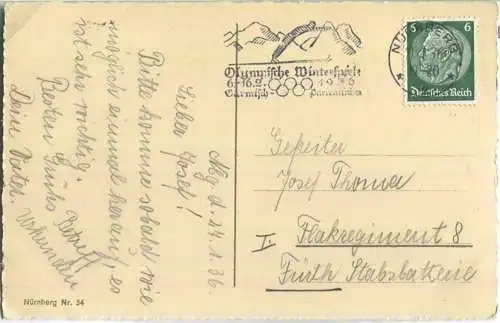 Nbg. d. 24.1.36.
Lieber Josef!
Bitte komme sobald wie
möglich einmal herauf, es
ist sehr wichtig.
Besten Gruß
Dein Vater
Nürnberg Nr. 34
Olympische Winterspiele
6.-16.2. 1936
Garmisch- Partenkirchen
NÜRNBERG
6 6
Deutsches Reich
Gefreiter
Josef Thoma
I. Flakregiment 8
Fürth Stabsbatterie